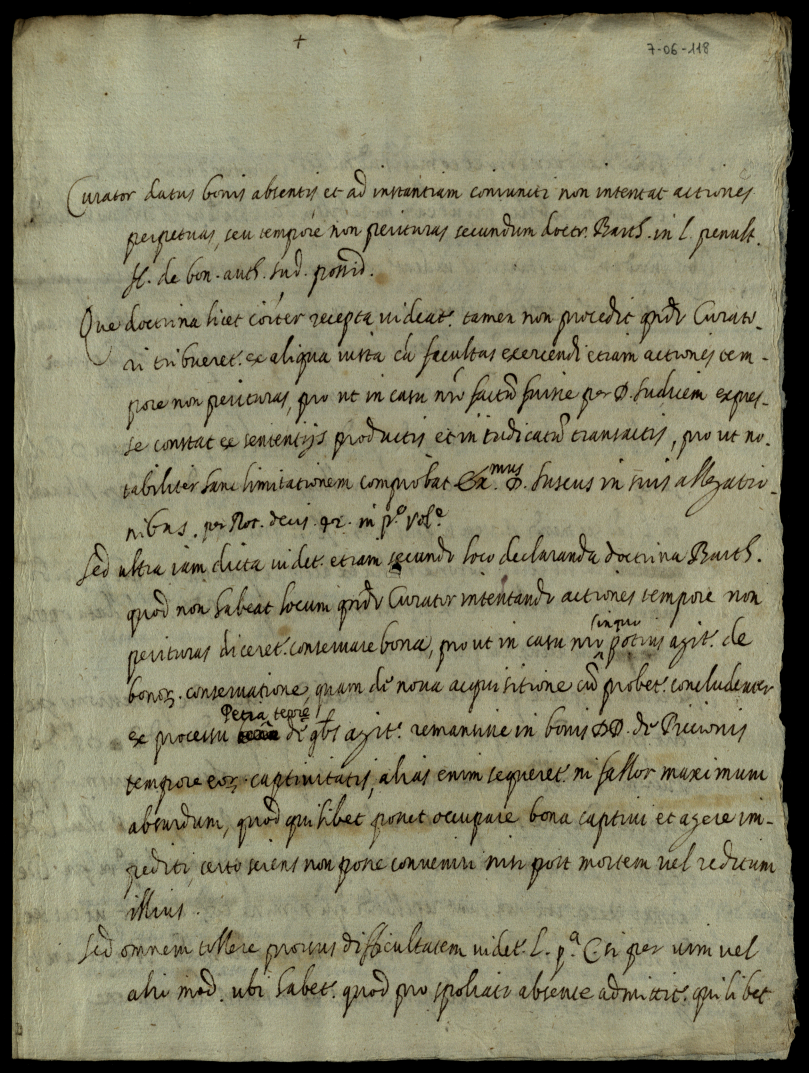 +
7-06-118
Curator datus bonis absentis et ad instantiam coniuncti non intentat actiones
perpetuas, seu tempore non perituras secundum doctr. Barth. in l. penult.
ff. de bon. auth. Iud. possid.
Que doctrina licet coiter recepta uideat. tamen non procedit qndo Curato-
ri tribueret. ex aliqua iusta ca facultas exercendi etiam actiones tem-
pore non perituras, pro ut in casu nro factu fuisse per D. Iudicem expres-
se constat ex sententijs productis et in iudicatu transactis, pro ut no-
tabiliter hanc limitationem comprobat Exmus D. Fuscus in suis allegatio-
nibus. per Rot. decis. in po vole
Sed ultra iam dicta uidet. etiam secundo loco declaranda doctrina Barth.
quod non habeat locum qndo Curator intentando actiones tempore non
perituras diceret. conseruare bona, pro ut in casu nro potius agit. de
bonor. conseruatione quam de noua acquisitione cu probet. concludenter
ex processu Petia terre de qbs agit. remansisse in bonis DD. de Piccionis
tempore eor. captiuitatis, alias enim sequeret. ni fallor maximum
absurdum, quod quilibet posset occupare bona captiui et agere im-
pediti, certo sciens non posse conueniri nisi post mortem uel reditum
illius.
Sed omnem tollere prorsus difficultatem uidet. l. pa C. si per uim uel
alio mod. ubi habet. quod pro spoliato absente admittit. quilibet